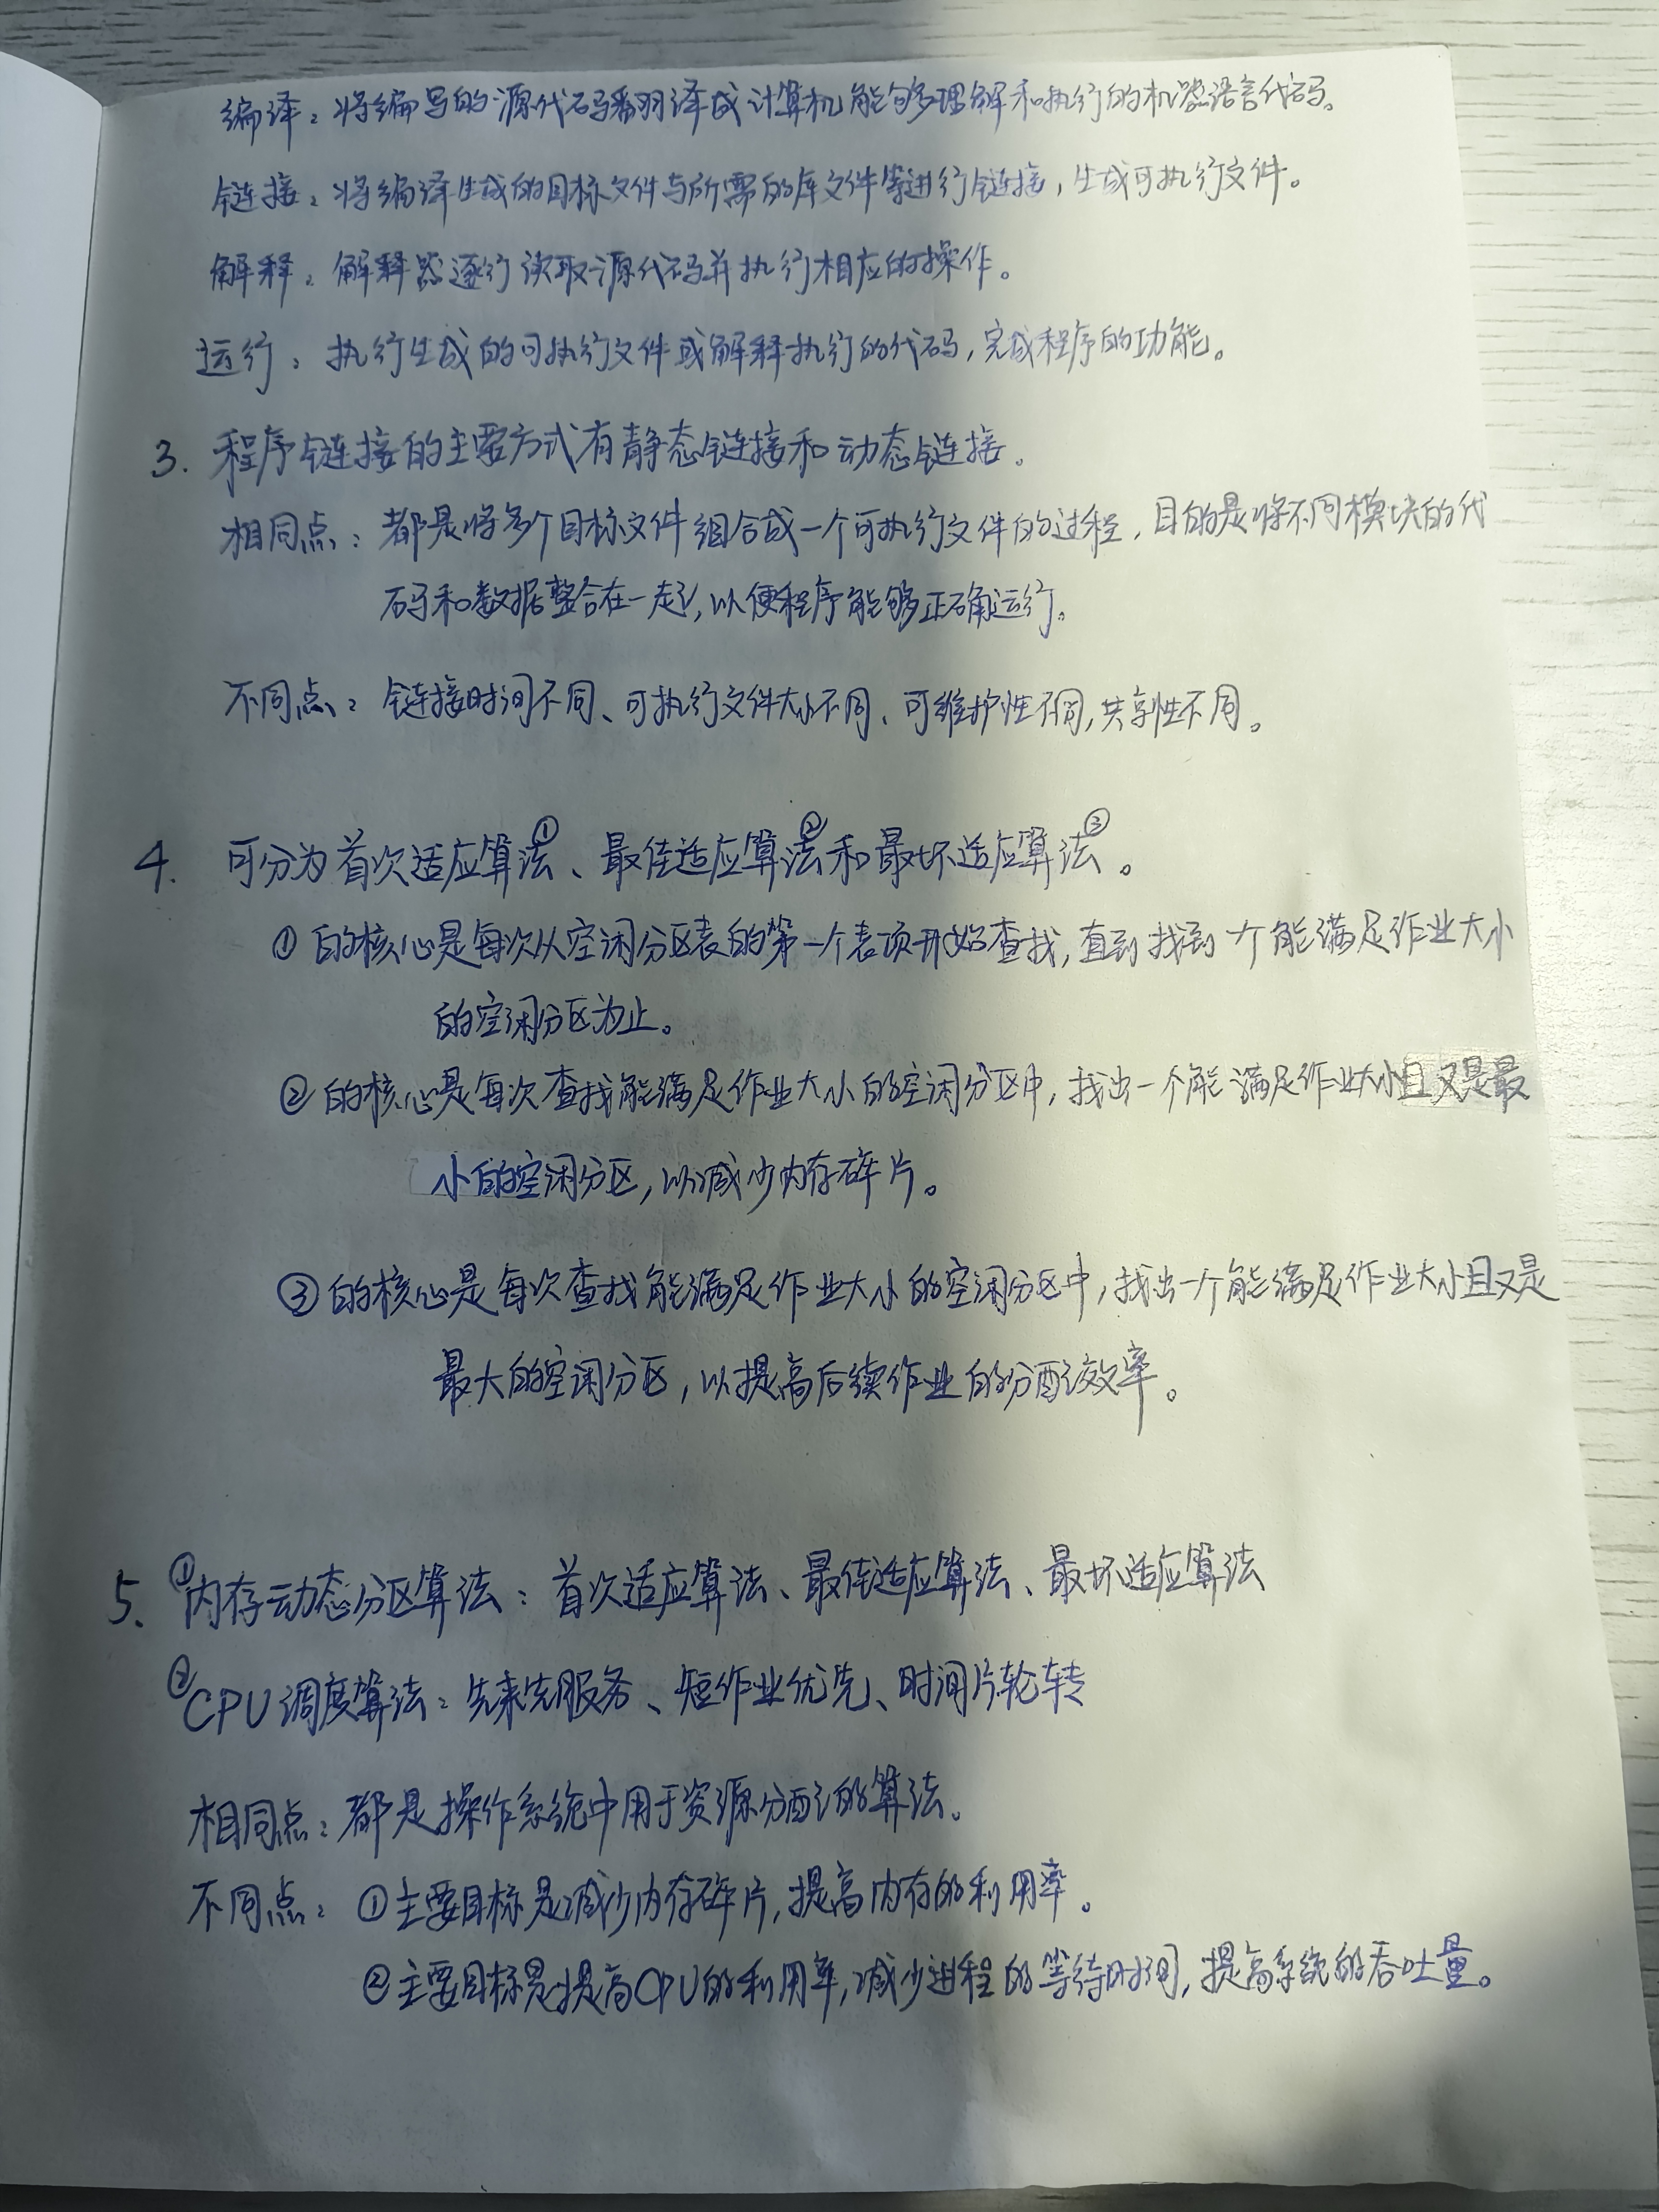 编译：将编写的源代码翻译成计算机能够理解和执行的机器语言代码。
链接：将编译生成的目标文件与所需的库文件等进行链接，生成可执行文件。
解释：解释器逐行读取源代码并执行相应的操作。
运行：执行生成的可执行文件或解释执行的代码，完成程序的功能。
3. 程序链接的主要方式有静态链接和动态链接。
相同点：都是将多个目标文件组合成一个可执行文件的过程，目的是将不同模块的代
码和数据整合在一起，以便程序能够正确运行。
不同点：链接时间不同、可执行文件大小不同、可维护性不同，共享性不同。
4. 可分为首次适应算法①、最佳适应算法②和最坏适应算法③。
① 的核心是每次从空闲分区表的第一个表项开始查找，直到找到一个能满足作业大小
的空闲分区为止。
② 的核心是每次查找能满足作业大小的空闲分区中，找出一个能满足作业大小且又是最
小的空闲分区，以减少内存碎片。
③ 的核心是每次查找能满足作业大小的空闲分区中，找出一个能满足作业大小且又是
最大的空闲分区，以提高后续作业的分配效率。
5. ①内存动态分区算法：首次适应算法、最佳适应算法、最坏适应算法
②CPU调度算法：先来先服务、短作业优先、时间片轮转
相同点：都是操作系统中用于资源分配的算法。
不同点：①主要目标是减少内存碎片，提高内存的利用率。
②主要目标是提高CPU的利用率，减少进程的等待时间，提高系统的吞吐量。